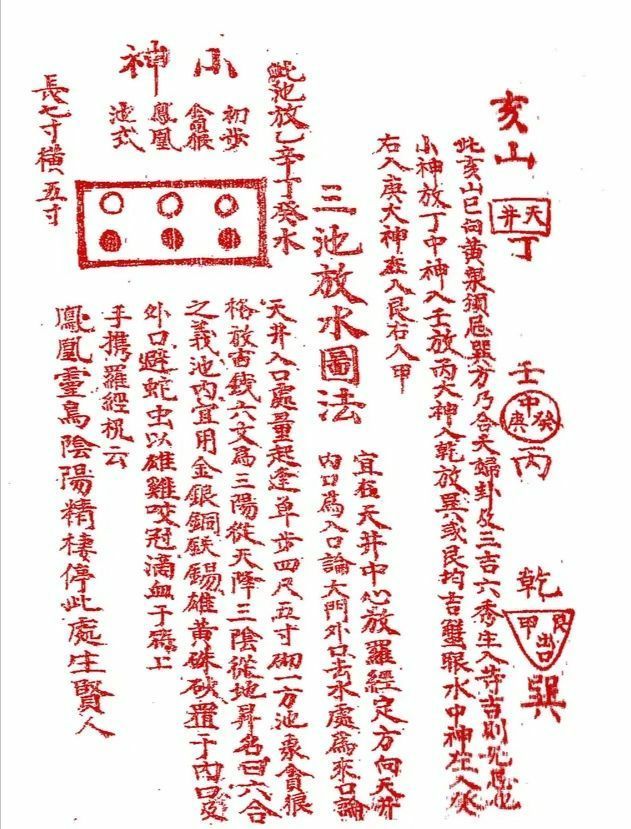 亥山
天井
丁
壬
中
癸
庚
丙
乾
艮
甲
出口
巽
此亥山巳向黄泉須忌巽方乃合夫婦卦及三吉六秀生入寺吉則死忌也
小神放丁中神入壬放丙大神入乾放巽或艮均吉蟹眼水中神左入癸
右入庚大神左入艮右入甲
三池放水圖法
宜在天井中心放羅經定方向天井
内口為入口論大門外口去水處為來口論
天井入口處量起逢单步四尺五寸砌一方池象貪狼
格放古錢六文為三陽從天降三陰從地昇名曰六合
之義池内宜用金銀銅鉄錫雄黄硃砂置于内口及
外口避蛇虫以雄雞咬冠滴血于上
手携羅經祝云
鳳凰靈鳥陰陽精棲停此處生賢人
此池放乙辛丁癸水
小神
初步
貪狼
鳳凰
池式
長七寸橫五寸